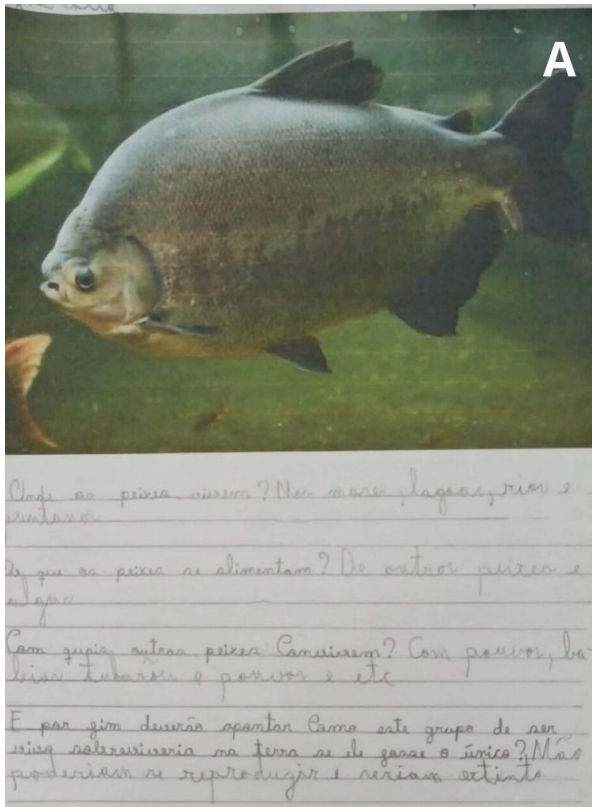 A
Onde os peixes vivem? Nos mares, lagoas, rios e
De que os peixes se alimentam? De outros peixes e
algas
Com quais outros peixes Convivem? Com pouvos, ba-
leias tubarões e pouvos e etc
E por fim deverão apontar Como este grupo de ser
vivo sobreviveria na terra se ele fosse o único? Não
poderiam se reproduzir e seriam extinto